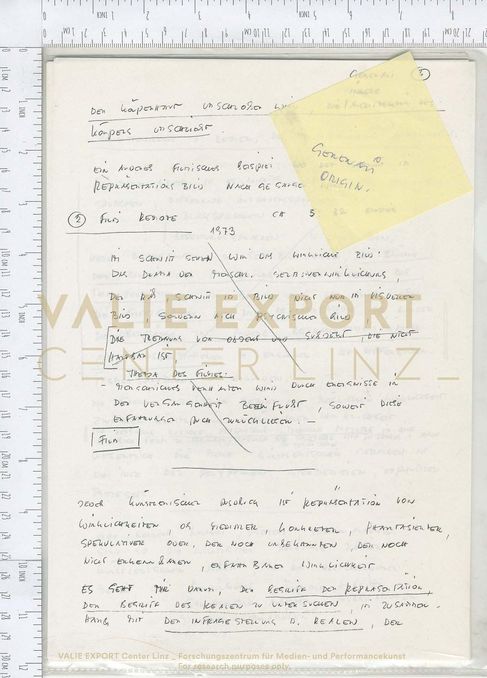 5
DER KÖRPERHAUT UMSCHLOSSEN WIRD
KÖRPERS UMSCHLIESST.
GERONA
ORIGIN.
EIN ANDERES FILMISCHES BEISPIEL
REPRÄSENTATIONS BILD NACH
2 FILM REMOTE 5
1973
IM SCHNITT SEHEN WIR DAS WIRKLICHE BILD:
DAS DRAMA DER MENSCHL. SELBSTVERWIRKLICHUNG,
DER SCHNITT BILD NICHT NUR IM VISUELLEN
BILD SONDERN AUCH PSYCHISCHES BILD
DIE TRENNUNG VON OBJEKT UND SUBJEKT, DIE NICHT
IST.
THEMA DES FILMES:
- MENSCHLICHES VERHALTEN WIRD DURCH EREIGNISSE IN
DER VERGANGENHEIT BEEINFLUSST, SOWEIT DIESE
ERFAHRUNGEN AUCH ZURÜCKLIEGEN. -
FILM
JEDER KÜNSTLERISCHER AUSDRUCK IST REPRÄSENTATION VON
WIRKLICHKEITEN, OB MEDIALER, KONKRETER, PHANTASIERTER,
SPEKULATIVER ODER, DER NOCH UNBEKANNTEN, DER NOCH
NICHT ERKENNBAREN, ERFAHRBAREN WIRKLICHKEIT
ES GEHT MIR DARUM, DEN BEGRIFF DER REPRÄSENTATION,
DEN BEGRIFF DES REALEN ZU UNTERSUCHEN, IM ZUSAMMEN-
HANG MIT DER INFRAGESTELLUNG D. REALEN, DER
VALIE EXPORT
CENTER LINZ_
VALIE EXPORT Center Linz _ Forschungszentrum für Medien- und Performancekunst
For research purposes only.